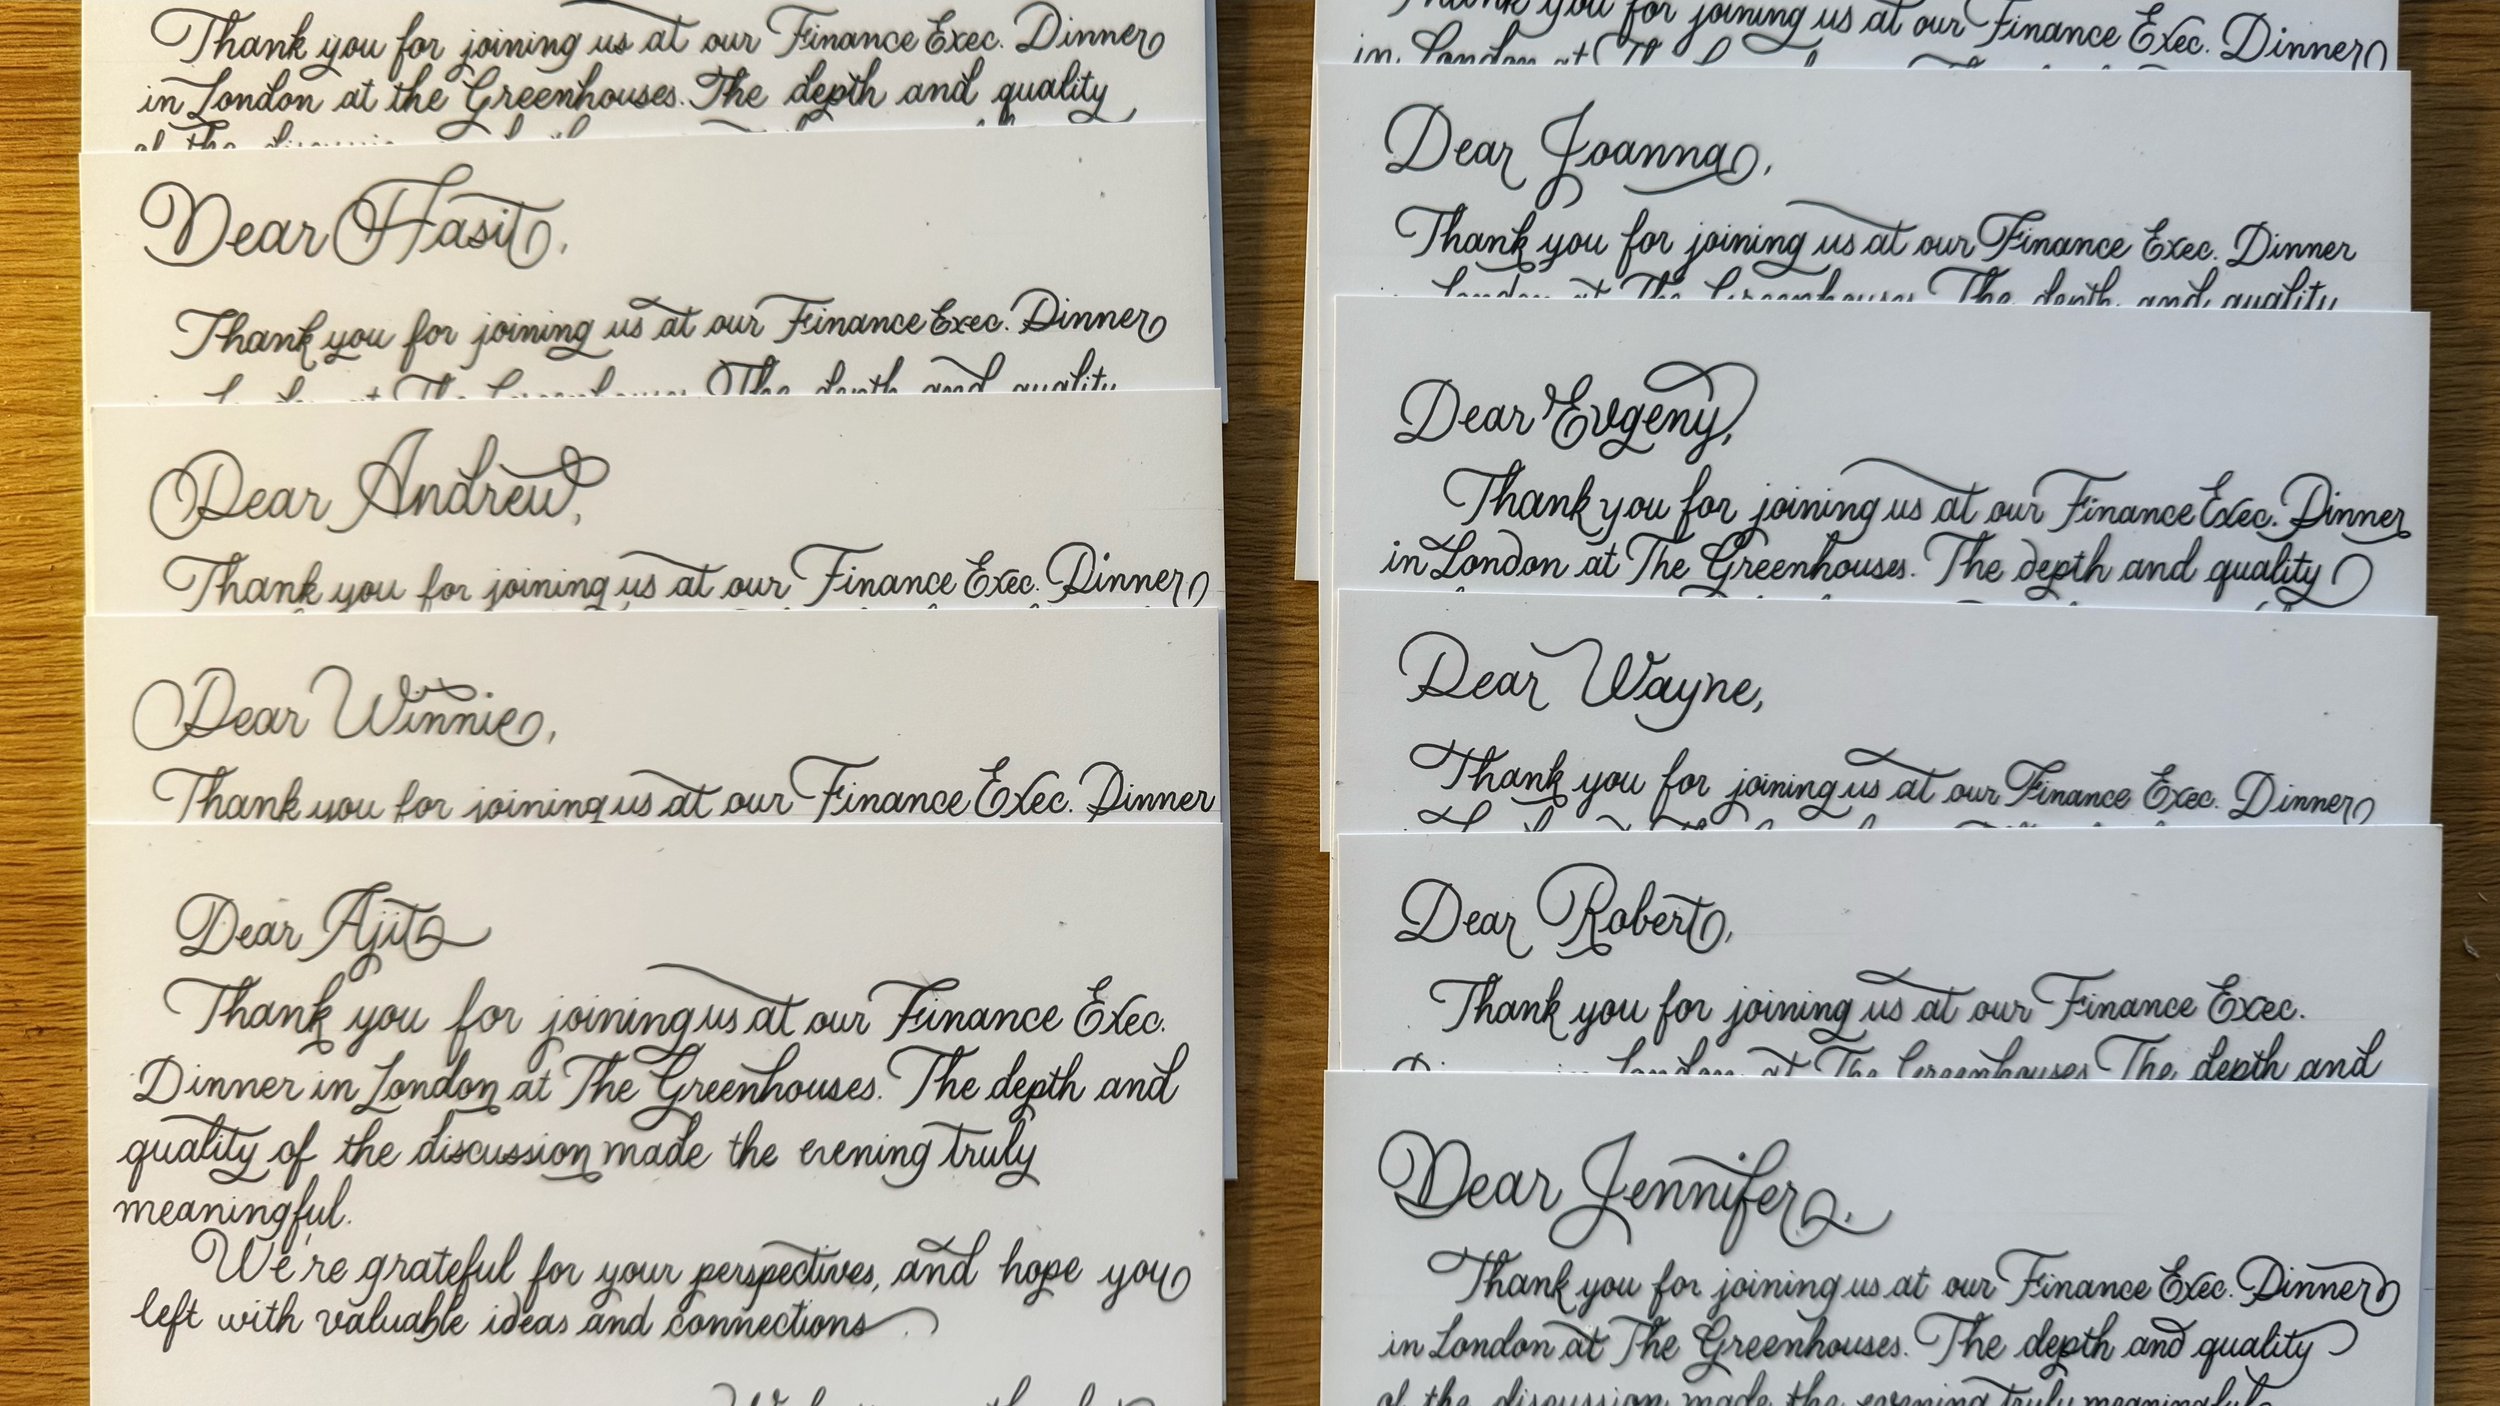 Thank you for joining us at our Finance Exec. Dinner
in London at the Greenhouses. The depth and quality
of the
Dear Hasit,
Thank you for joining us at our Finance Exec. Dinner
The depth and quality
Dear Andrew,
Thank you for joining us at our Finance Exec. Dinner
Dear Winnie,
Thank you for joining us at our Finance Exec. Dinner
Dear Ajit
Thank you for joining us at our Finance Exec.
Dinner in London at The Greenhouses. The depth and
quality of the discussion made the evening truly
meaningful.
We're grateful for your perspectives, and hope you
left with valuable ideas and connections.
Thank you for joining us at our Finance Exec. Dinner
in London at
Dear Joanna,
Thank you for joining us at our Finance Exec. Dinner
London at The Greenhouses. The depth and quality
Dear Evgeny,
Thank you for joining us at our Finance Exec. Dinner
in London at The Greenhouses. The depth and quality
Dear Wayne,
Thank you for joining us at our Finance Exec. Dinner
Dear Robert,
Thank you for joining us at our Finance Exec.
in London at The Greenhouses. The depth and
Dear Jennifer,
Thank you for joining us at our Finance Exec. Dinner
in London at The Greenhouses. The depth and quality
of the discussion made the evening truly meaningful.